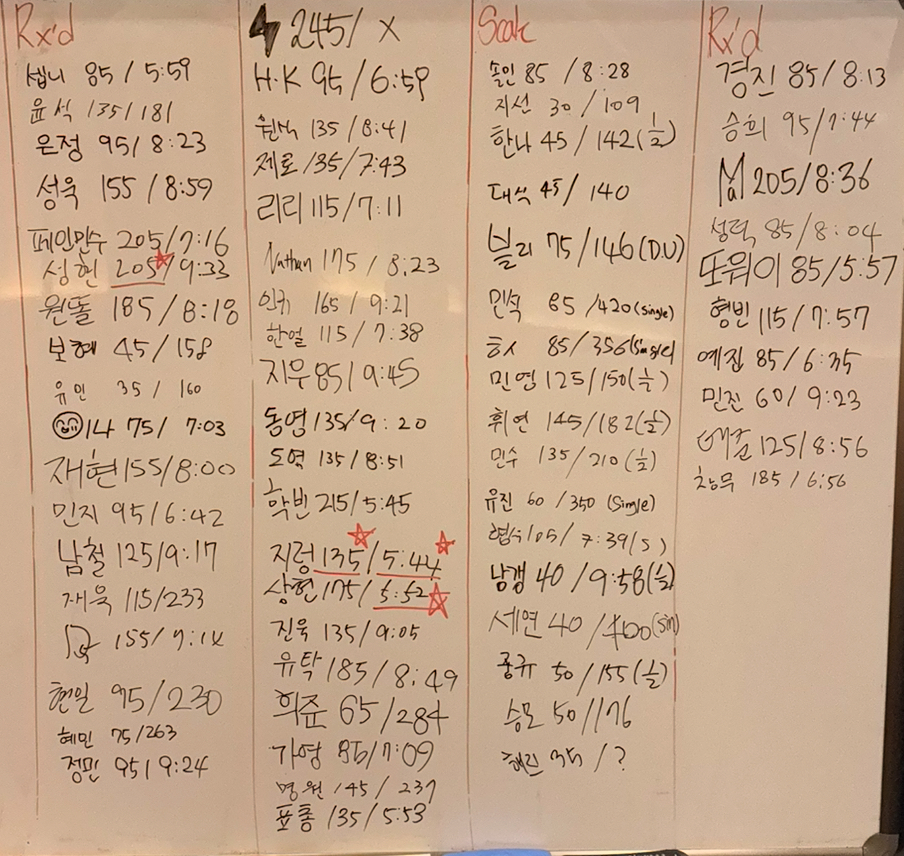 Rx'd
셉니 85 / 5:59
윤석 135/181
은정 95/ 8:23
성욱 155 / 8:59
페인민수 205/7:16
성현 205/9:33
원돌 185/ 8:18
보현 45/ 158
유인 35 / 160
14 75/ 7:03
재현 155/8:00
민지 95/6:42
남철 125/9:17
재욱 115/233
155/7:14
현일 95/230
혜민 75/263
정민 95/ 9:24
245/ X
H.K 95/6:59
원식 135/8:41
제로 135/7:43
리리 115/7:11
Nathan 175 / 8:23
인규 165 / 9:21
한얼 115/ 7:38
지우 85/ 9:45
동영 135/9:20
도혁 135 /8:51
학빈 215/5:45
지렁 135/5:44
상현 175/ 5:52
진욱 135/9:05
유탁 185/ 8:49
희준 65 /284
가영 85/7:09
명원 145/ 237
표총 135/5:53
Scale
솔인 85 /8:28
지선 30 /109
한나 45 / 142(½)
대식 45/ 140
블리 75/146(D.U)
민석 85 /420(single)
85/356(Single)
민영 125/150(½)
휘연 145/182(½)
민수 135/210(½)
유진 60 / 350 (Single)
105/ 7:39(s)
남갱 40 /9:58(½)
세연 40 /400(sin)
종규 50/155(½)
승모 50/176
해린 35 / ?
Rx'd
경진 85/8:13
승희 95/7:44
205/8:36
성력 85/8:04
또위이 85/5:57
형빈 115/7:57
예진 85/6:35
민진 60/ 9:23
125/8:56
창무 185 / 6:56